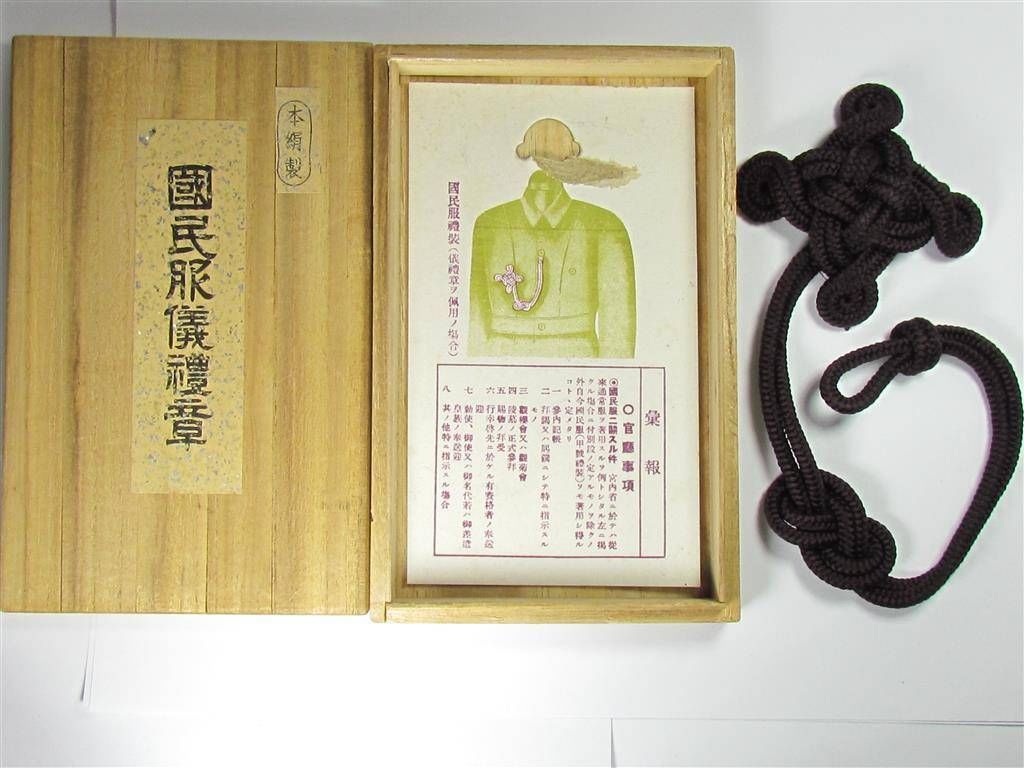 本絹製
國民服儀禮章
國民服禮裝(儀禮章ヲ佩用ノ塲合)
彙報
〇官廳事項
◉國民服ニ關スル件 宮内省ニ於テハ從
來通常服ヲ著用スルヲ例トシタル左ニ揭
クル塲合ニ付別段ノ定アルモノヲ除クノ
外自今國民服(甲號禮裝)ヲモ著用シ得ル
コトヽ定メタリ
一 參内記帳
二 拜謁又ハ賜謁ニシテ特ニ指示スル
モノ
三 觀櫻會又ハ觀菊會
四 陵墓ノ正式參拜
五 賜物ノ拜受
六 行幸啓先ニ於ケル有資格者ノ奉送
迎
七 勅使、御使又ハ御名代若ハ御差遣
皇族ノ奉送迎
八 其ノ他特ニ指示スル塲合